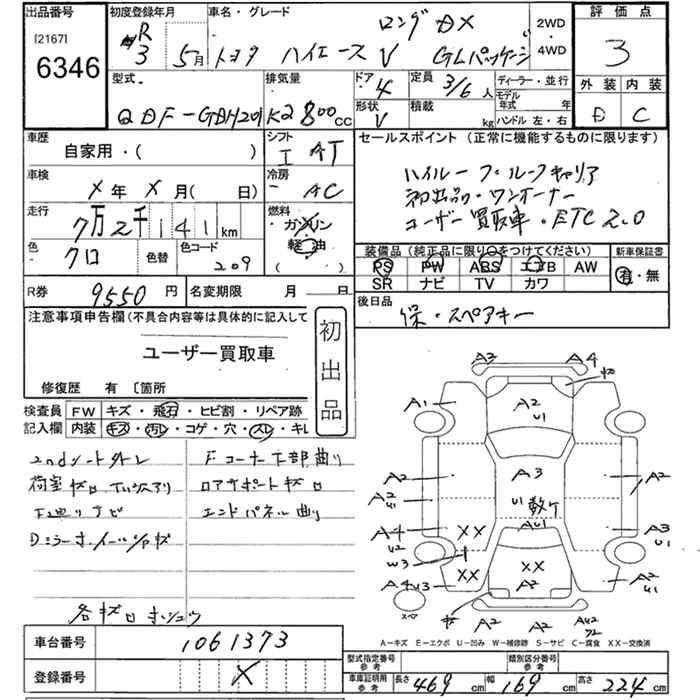 出品番号
[2167]
6346
初度登録年月
R
3 5月
車名・グレード
ロング DX
トヨタ ハイエース V GLパッケージ
2WD
・
4WD
評価点
3
外装 内装
D C
型式
QDF-GDH201K
排気量
2800cc
ドア
4
形状
V
定員
3/6人
積載
kg
ディーラー・並行
モデル年式 年
ハンドル 左・右
車歴
自家用・( )
シフト
I AT
車検
X年 X月( 日)
冷房
AC
走行
7万2千141km
燃料
ガソリン
軽油
( )
色
クロ
色替
色コード
209
セールスポイント (正常に機能するものに限ります)
ハイルーフ・ルーフキャリア
初出品・ワンオーナー
ユーザー買取車・ETC2.0
装備品(純正品に限り○をつけてください)
PS PW ABS エアB AW
SR ナビ TV カワ
新車保証書
有・無
R券
9550円
名変期限 月 日
後日品
保・スペアキー
注意事項申告欄(不具合内容等は具体的に記入して
ユーザー買取車
修復歴 有 〔箇所
初出品
検査員記入欄
FW キズ・飛石・ヒビ割・リペア跡
内装 キズ・汚レ・コゲ・穴・スレ・キレ
2ndシート外レ
荷室キズ
Fコーナー下部曲り
ロアサポートキズ
エンドパネル曲り
A3 A4
A1
A2
U1
A2
A2
U1
A3
U1 数ケ
AU1
A2
A4
U2
W3
XX
XX
XX
A2
A3
U1
A4U3
A2
U1
スペ
A2 A2 AU2
A-キズ E-エクボ U-凹み W-補修跡 S-サビ C-腐食 XX-交換済
車台番号
1061373
登録番号
X
型式指定番号
参考
類別区分番号
参考
車庫証明用
参考
長さ 469 cm 幅 169 cm 高さ 224 cm